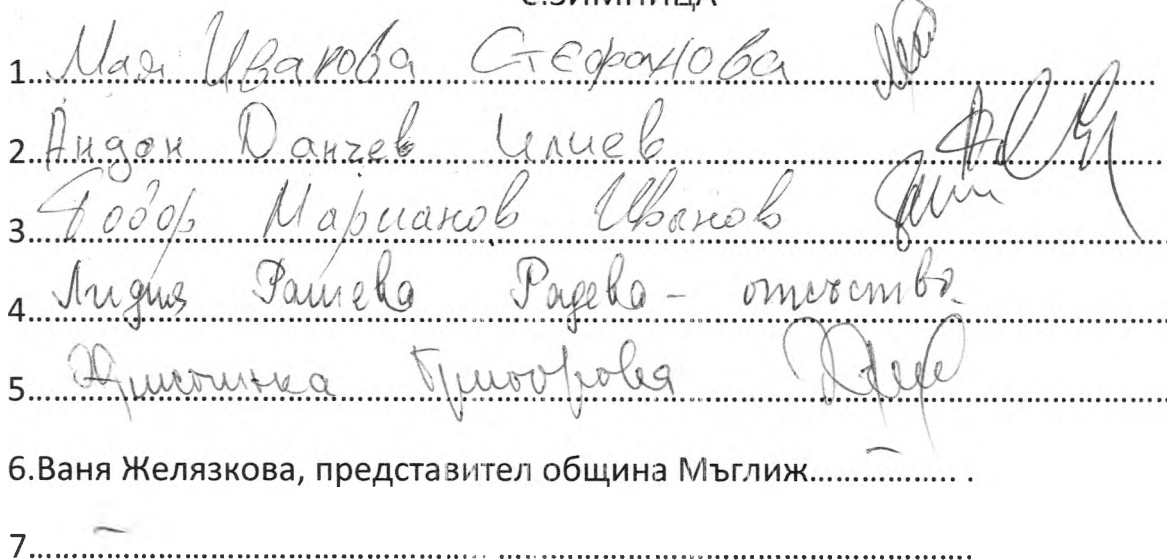 с.ЗИМНИЦА
1. Мая Иванова Стефанова
2. Андон Данчев Илиев
3. Тодор Марианов Иванов
4. Лидия Рашева Радева - отсъства
5. Григорова
6.Ваня Желязкова, представител община Мъглиж
7.